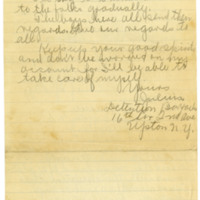 to the folks gradually.
The boys here all send their
regards. Give my regards to
all.
Keep up your good spirits
and don't be worried on my
account for I'll be able to
take care of myself
Yours
Julius
16th
Upton N.Y.